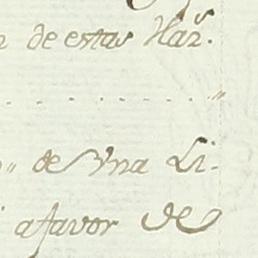 de estas Har.^s
de Vna Li-
afavor de